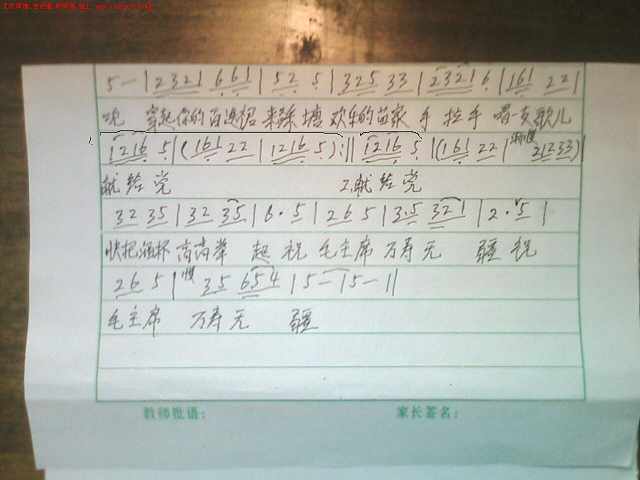 5 — | 2321 661 | 52 5 | 325 33 | 2321 6 | 161 22 |
穿起你的百边裙 来 塘 欢乐的苗家 手 拉 手 唱一支歌儿
1216 5 | (161 22 | 1216 5) :|| 1216 5 | (161 22 | 31233) |
献给党 2.献给党
32 35 | 32 35 | 6· 5 | 26 5 | 3·5 321 | 2· 5 |
快把酒杯高高举 起 祝 毛主席 万寿无 疆 祝
26 5 | 35 654 | 5 — | 5 — ||
毛主席 万寿无 疆
教师批语: 家长签名: